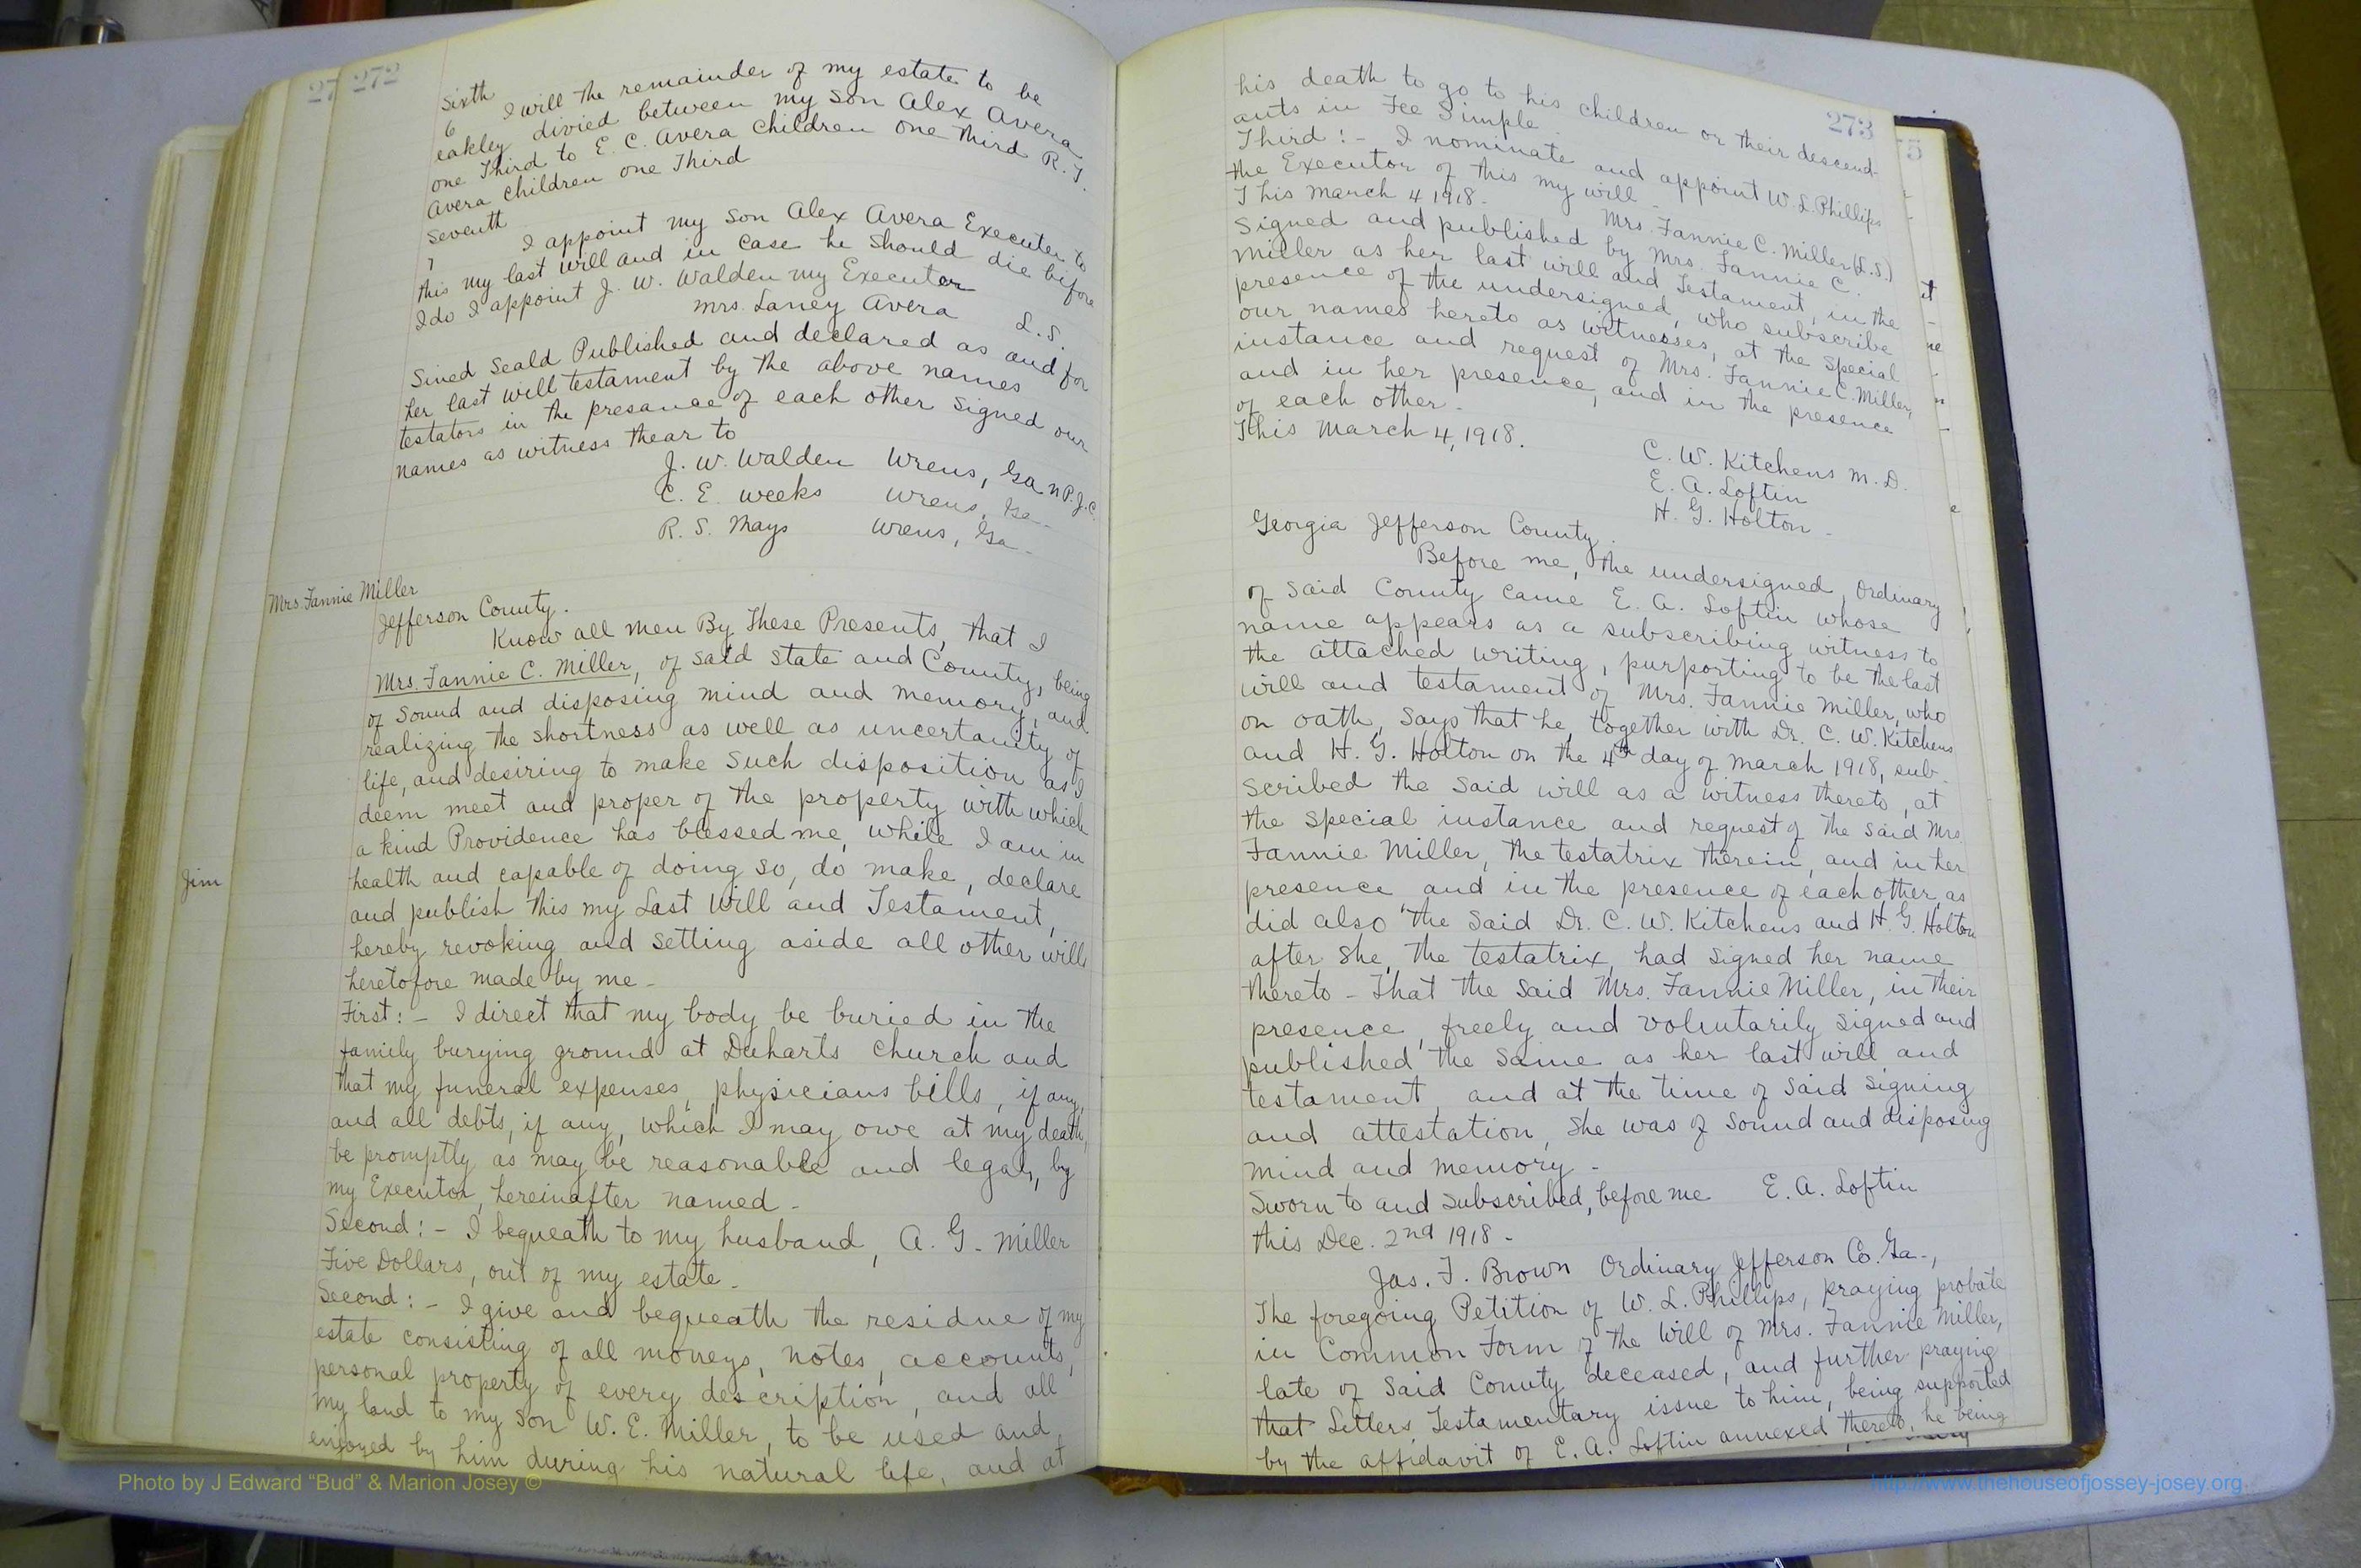 27 272
Sixth
6 I will the remainder of my estate to be
eakley divied between my son Alex Avera
one Third to E. C. Avera Children one Third R. J.
Avera Children one Third
Seventh
7 I appoint my son Alex Avera Executer to
this my last will and in case he should die before
I do I appoint J. W. Walden my Executor
Mrs. Laney Avera L.S.
Sined Seald Published and declared as and for
her last will testament by the above names
testators in the presance of each other signed our
names as witness thear to
J. W. Walden Wrens, Ga N.P.J.C.
C. E. Weeks Wrens, Ga-
R. S. Mays Wrens, Ga-
Mrs. Fannie Miller
Jefferson County.
Know all men By These Presents, that I
Mrs. Fannie C. Miller, of said State and County, being
of sound and disposing mind and memory, and
realizing the shortness as well as uncertainty of
life, and desiring to make such disposition as I
deem meet and proper of the property with which
a kind Providence has blessed me, while I am in
health and capable of doing so, do make, declare
Jim
and publish this my Last Will and Testament,
hereby revoking and setting aside all other wills
heretofore made by me -
First: - I direct that my body be buried in the
family burying ground at Duharts Church and
that my funeral expenses, physicians bills, if any,
and all debts, if any, which I may owe at my death,
be promptly as may be reasonable and legal, by
my Executor, hereinafter named -
Second: - I bequeath to my husband, A. G. Miller
Five Dollars, out of my estate -
Second: - I give and bequeath the residue of my
estate consisting of all moneys, notes, accounts,
personal property of every description, and all
my land to my son W. E. Miller, to be used and
enjoyed by him during his natural life, and at
273
75
his death to go to his children or their descend-
ants in Fee Simple.
Third: - I nominate and appoint W. L. Phillips
the Executor of this my will -
This March 4 1918.
Mrs. Fannie C. Miller (L.S.)
Signed and published by Mrs. Fannie C.
Miller as her last will and Testament, in the
presence of the undersigned, who subscribe
our names hereto as witnesses, at the special
instance and request of Mrs. Fannie C. Miller,
and in her presence, and in the presence
of each other -
This March 4, 1918.
C. W. Kitchens M. D.
E. A. Loftin
H. G. Holton -
Georgia Jefferson County.
Before me, the undersigned, Ordinary
of said County came E. A. Loftin whose
name appears as a subscribing witness to
the attached writing, purporting to be the last
will and testament of Mrs. Fannie Miller, who
on oath, says that he, together with Dr. C. W. Kitchens
and H. G. Holton on the 4th day of March 1918, sub-
scribed the said will as a witness thereto, at
the special instance and request of the said Mrs.
Fannie Miller, the testatrix therein, and in her
presence and in the presence of each other, as
did also the said Dr. C. W. Kitchens and H. G. Holton
after she, the testatrix, had signed her name
thereto - That the said Mrs. Fannie Miller, in their
presence, freely and voluntarily signed and
published the same as her last will and
testament, and at the time of said signing
and attestation, she was of sound and disposing
mind and memory -
Sworn to and subscribed, before me E. A. Loftin
this Dec. 2nd 1918 -
Jas. F. Brown Ordinary Jefferson Co. Ga.,
The foregoing Petition of W. L. Phillips, praying probate
in Common Form of the Will of Mrs. Fannie Miller,
late of said County deceased, and further praying
that Letters Testamentary issue to him, being supported
by the affidavit of E. A. Loftin annexed thereto, he being
Photo by J Edward "Bud" & Marion Josey ©
http://www.thehouseofjossey-josey.org